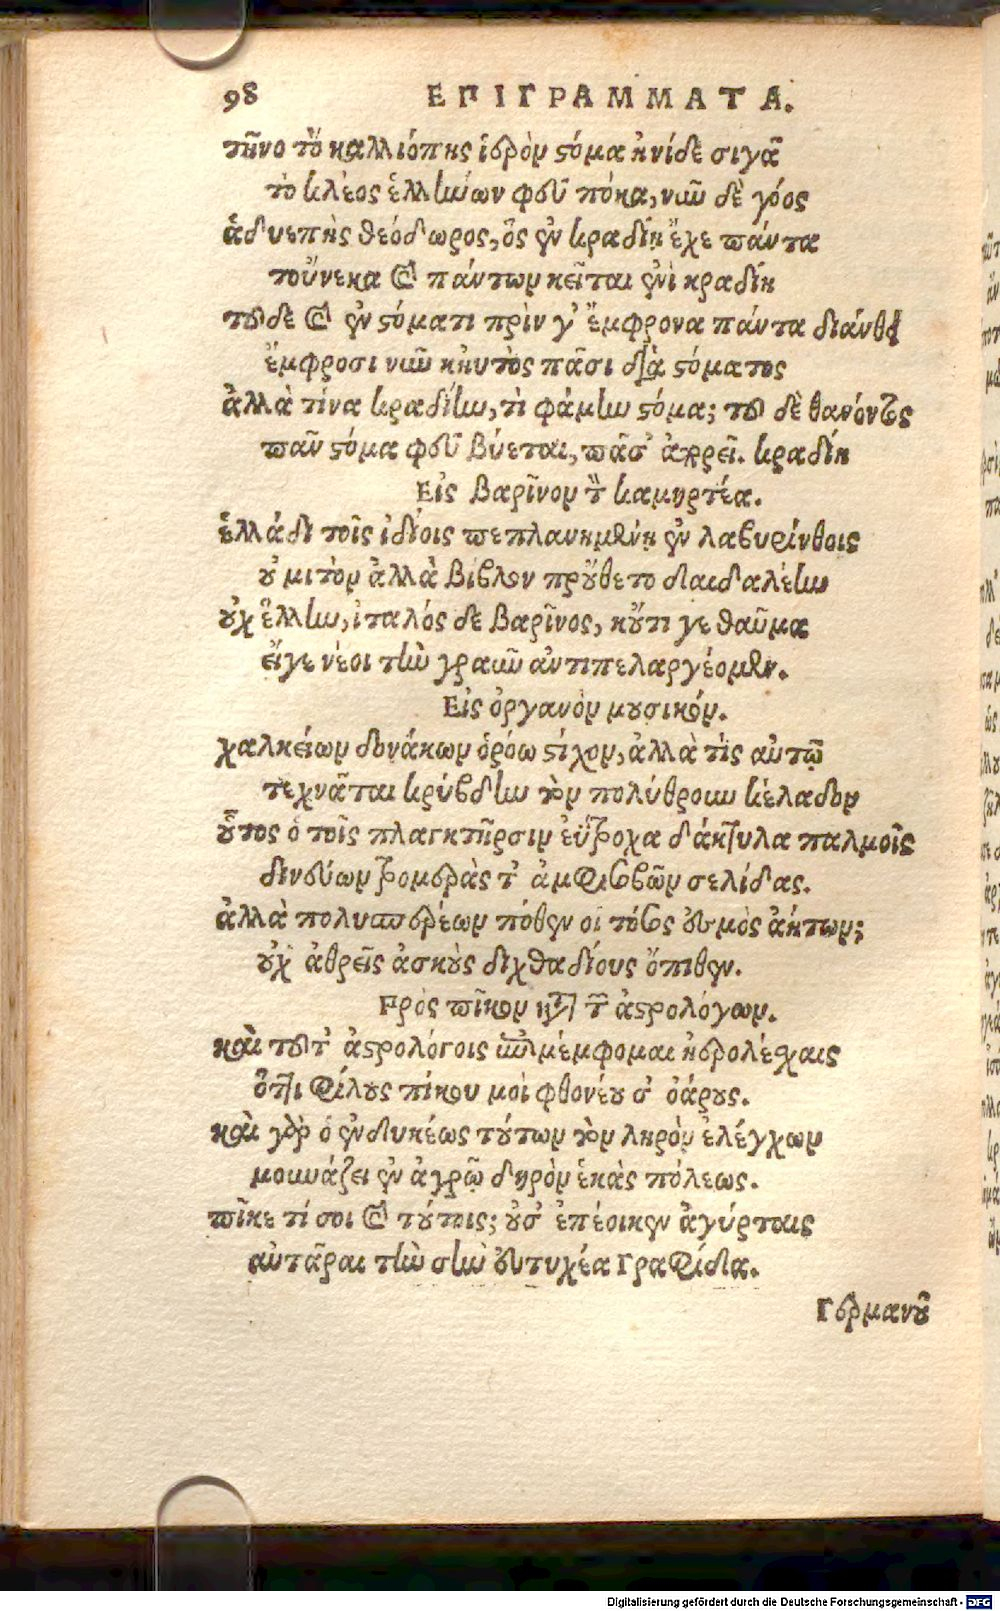 98 ΕΠΙΓΡΑΜΜΑΤΑ.
τῆνο τὸ καλλιόπης ἱερὸν στόμα ἠνίδε σιγᾷ
τὸ κλέος ἑλλήνων φεῦ πόκα, νῦν δὲ γόος
ἁδυεπὴς θεόδωρος, ὃς ἐν κραδίῃ ἔχε πάντα
τοὔνεκα καὶ πάντων κεῖται ἐνὶ κραδίῃ
τοῦδε καὶ ἐν στόματι πρὶν γ' ἔμφρονα πάντα διάνθει
ἔμφροσι νῦν κηὐτὸς πᾶσι διὰ στόματος
ἀλλὰ τίνα κραδίην, τὶ φάμην στόμα; τοῦ δὲ θανόντος
πᾶν στόμα φεῦ βύεται, πᾶσ' ἀκρεῖ. κραδίη
Εἰς βαρῖνον τὸν καμηρτέα.
ἑλλάδι τοῖς ἰδίοις πεπλανημένῃ ἐν λαβυρίνθοις
οὐ μιτὸν ἀλλὰ βίβλον προὔθετο δαιδαλέην
οὐχ ἕλλην, ἰταλός δε βαρῖνος, κοὔτι γε θαῦμα
εἴγε νέοι τὴν γραῦν ἀντιπελαργέομεν.
Εἰς ὀργανὸν μουσικόν.
χαλκείων δονάκων ὁρόω στίχον, ἀλλὰ τίς αὐτῷ
τεχνᾶται κρύβδην τὸν πολύθρουν κέλαδον
οὗτος ὁ τοῖς πλαγκτῆρσιν ἐΰτροχα δάκτυλα παλμοῖς
δινεύων τρομερὰς τ' ἀμφιβοβῶν σελίδας.
ἀλλὰ πολυσπερέων πόθεν οἱ τόσος ἑσμὸς ἀήτων;
οὐχ ἀθρεῖς ἀσκοὺς διχθαδίους ὄπιθεν.
Πρὸς πῖκον κατὰ τῶν ἀστρολόγων.
καὶ τοῦτ' ἀστρολόγοις ἐπιμέμφομαι ἠερολέσχαις
ὅττι φίλους πίκου μοὶ φθονέουσ' ὀάρους.
καὶ γὰρ ὁ ἐνδυκέως τούτων τὸν ληρὸν ἐλέγχων
μουνάζει ἐν ἀγρῷ δηρὸν ἑκὰς πόλεως.
πῖκε τί σοι καὶ τούτοις; οὔσ' ἐπέοικεν ἀγύρταις
αὐτᾶραι τὴν σὴν εὐτυχέα γραφίδα.
Γερμανοῦ
Digitalisierung gefördert durch die Deutsche Forschungsgemeinschaft - DFG